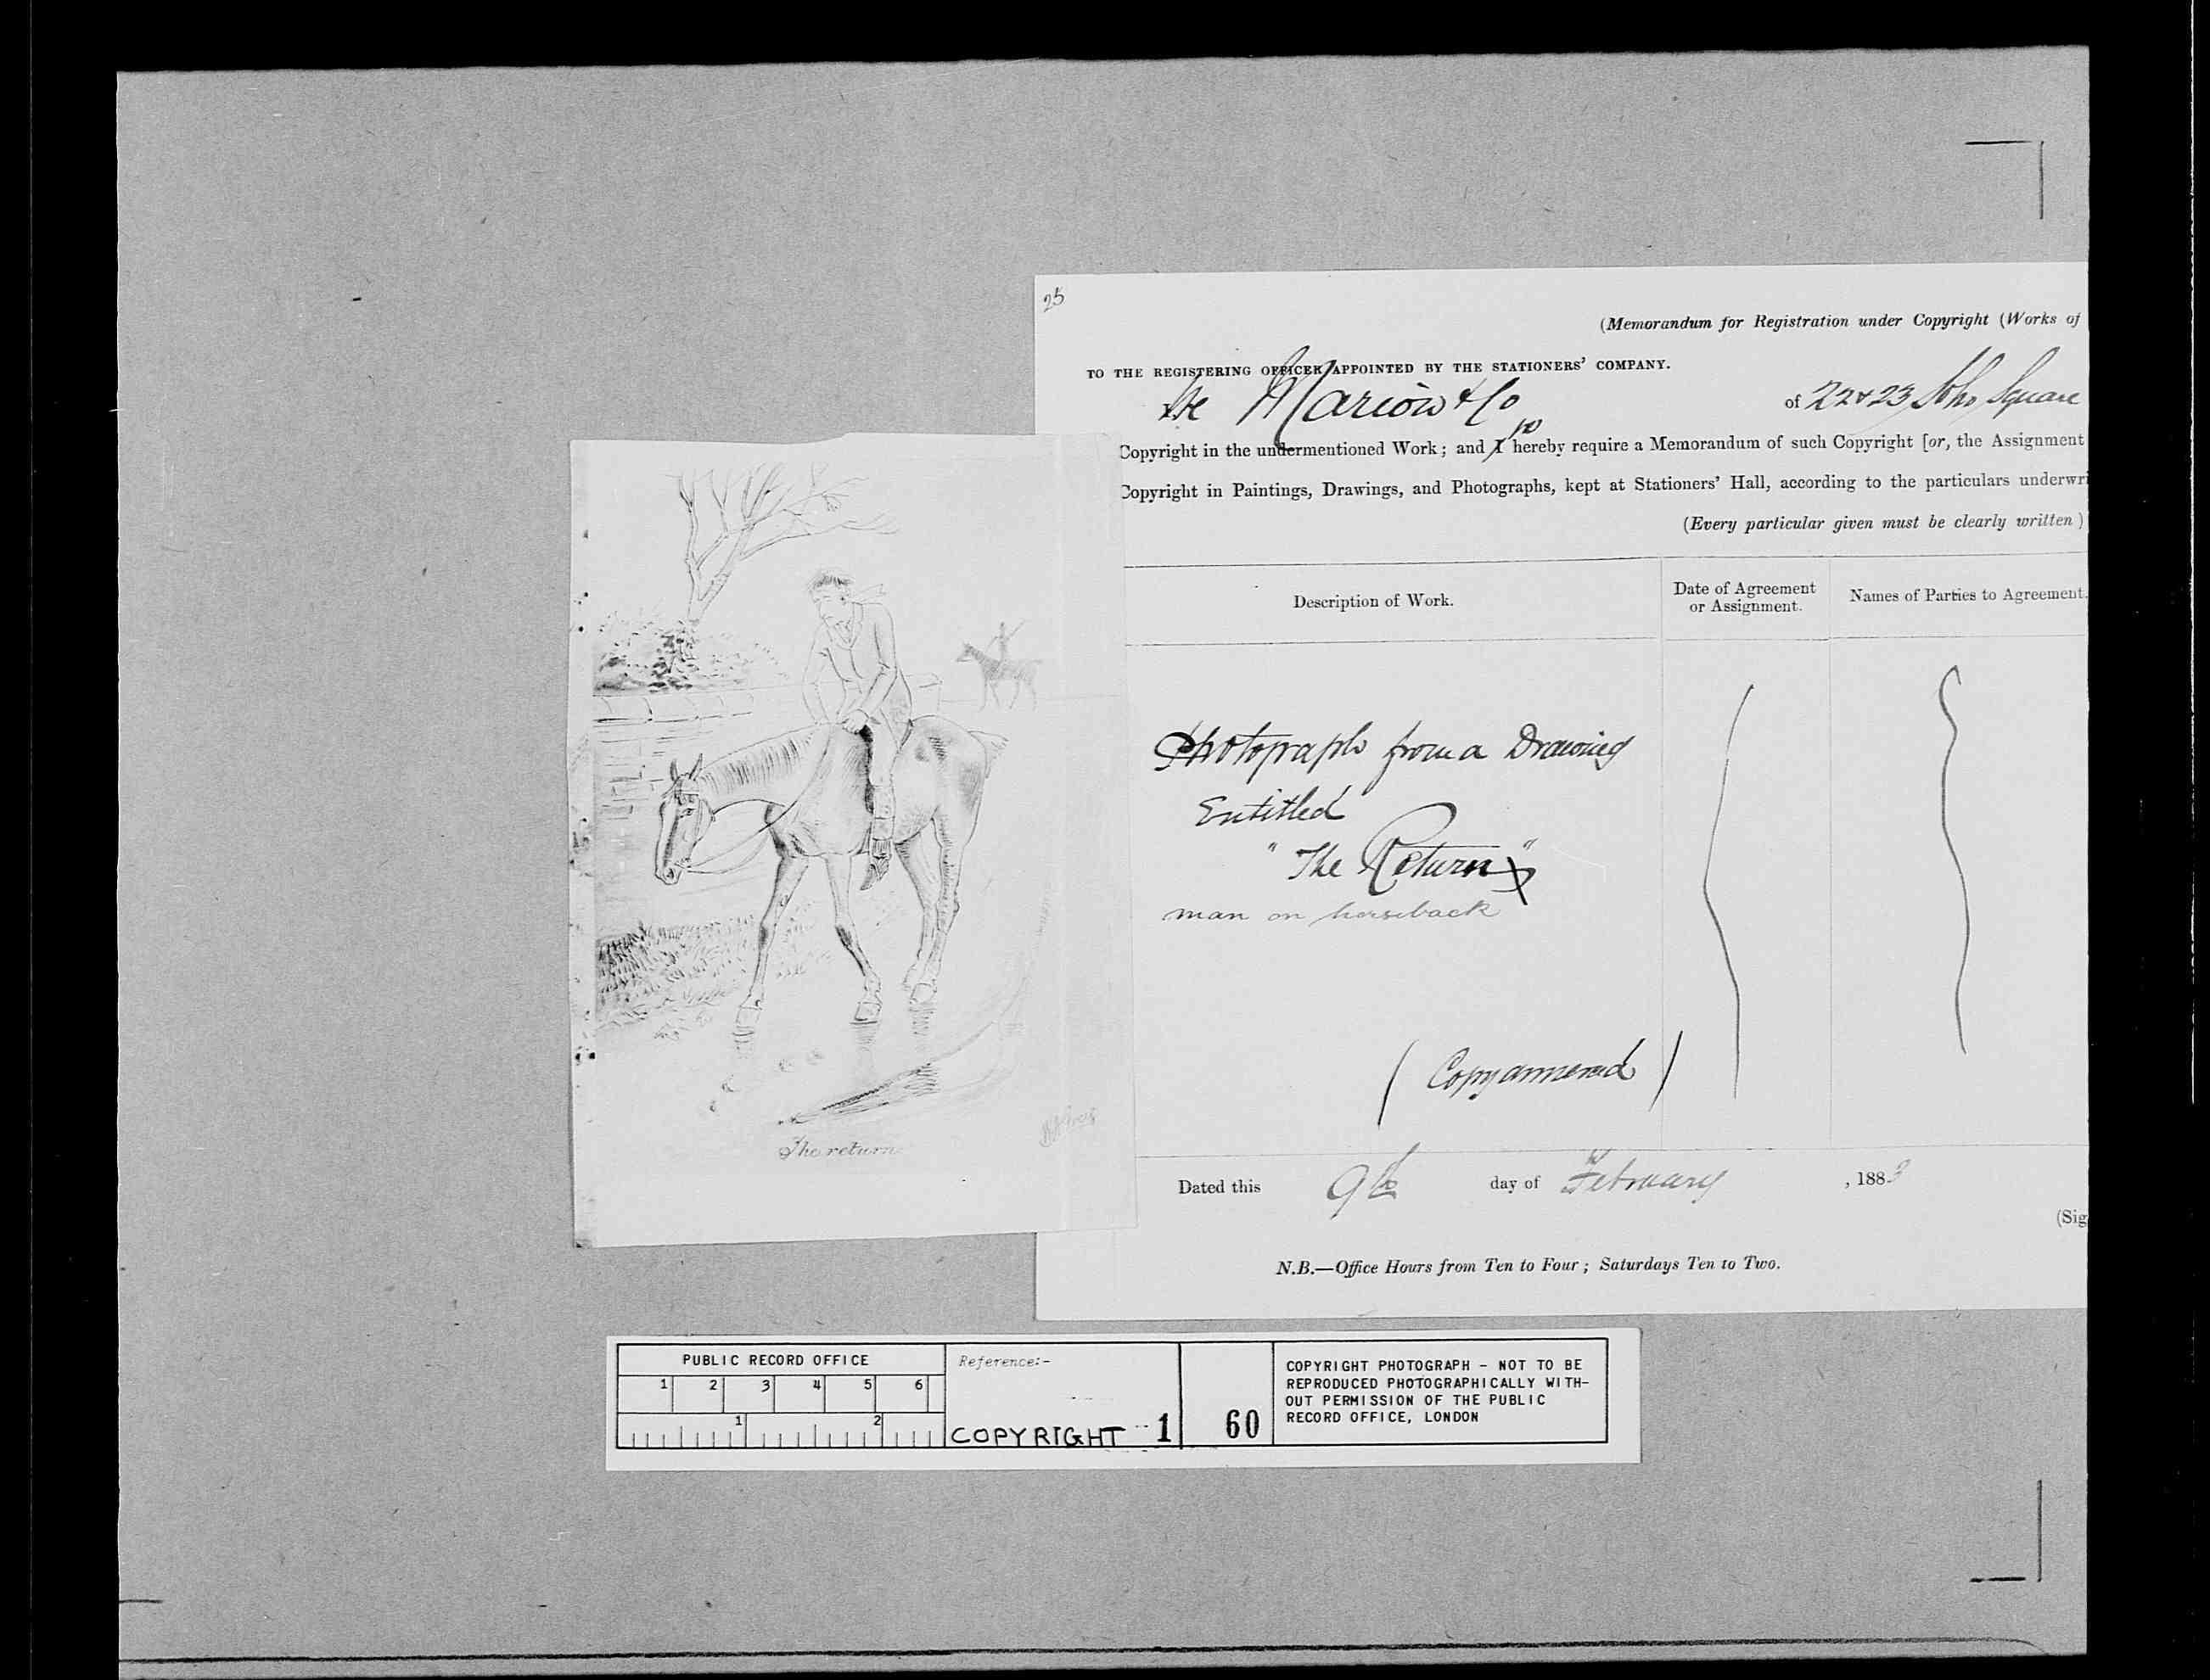 25
(Memorandum for Registration under Copyright (Works of
TO THE REGISTERING OFFICER APPOINTED BY THE STATIONERS' COMPANY.
We Marion & Co of 22 & 23 Soho Square
Copyright in the undermentioned Work; and I we hereby require a Memorandum of such Copyright [or, the Assignment
Copyright in Paintings, Drawings, and Photographs, kept at Stationers' Hall, according to the particulars underwri
(Every particular given must be clearly written)
Description of Work.
Date of Agreement
or Assignment.
Names of Parties to Agreement.
Photograph from a Drawing
Entitled
"The Return"
man on horseback
(Copy annexed)
The return
Dated this 9th day of February, 1883
(Sig
N.B.—Office Hours from Ten to Four; Saturdays Ten to Two.
PUBLIC RECORD OFFICE
1 2 3 4 5 6
1 2
Reference:-
COPYRIGHT 1
60
COPYRIGHT PHOTOGRAPH - NOT TO BE
REPRODUCED PHOTOGRAPHICALLY WITH-
OUT PERMISSION OF THE PUBLIC
RECORD OFFICE, LONDON